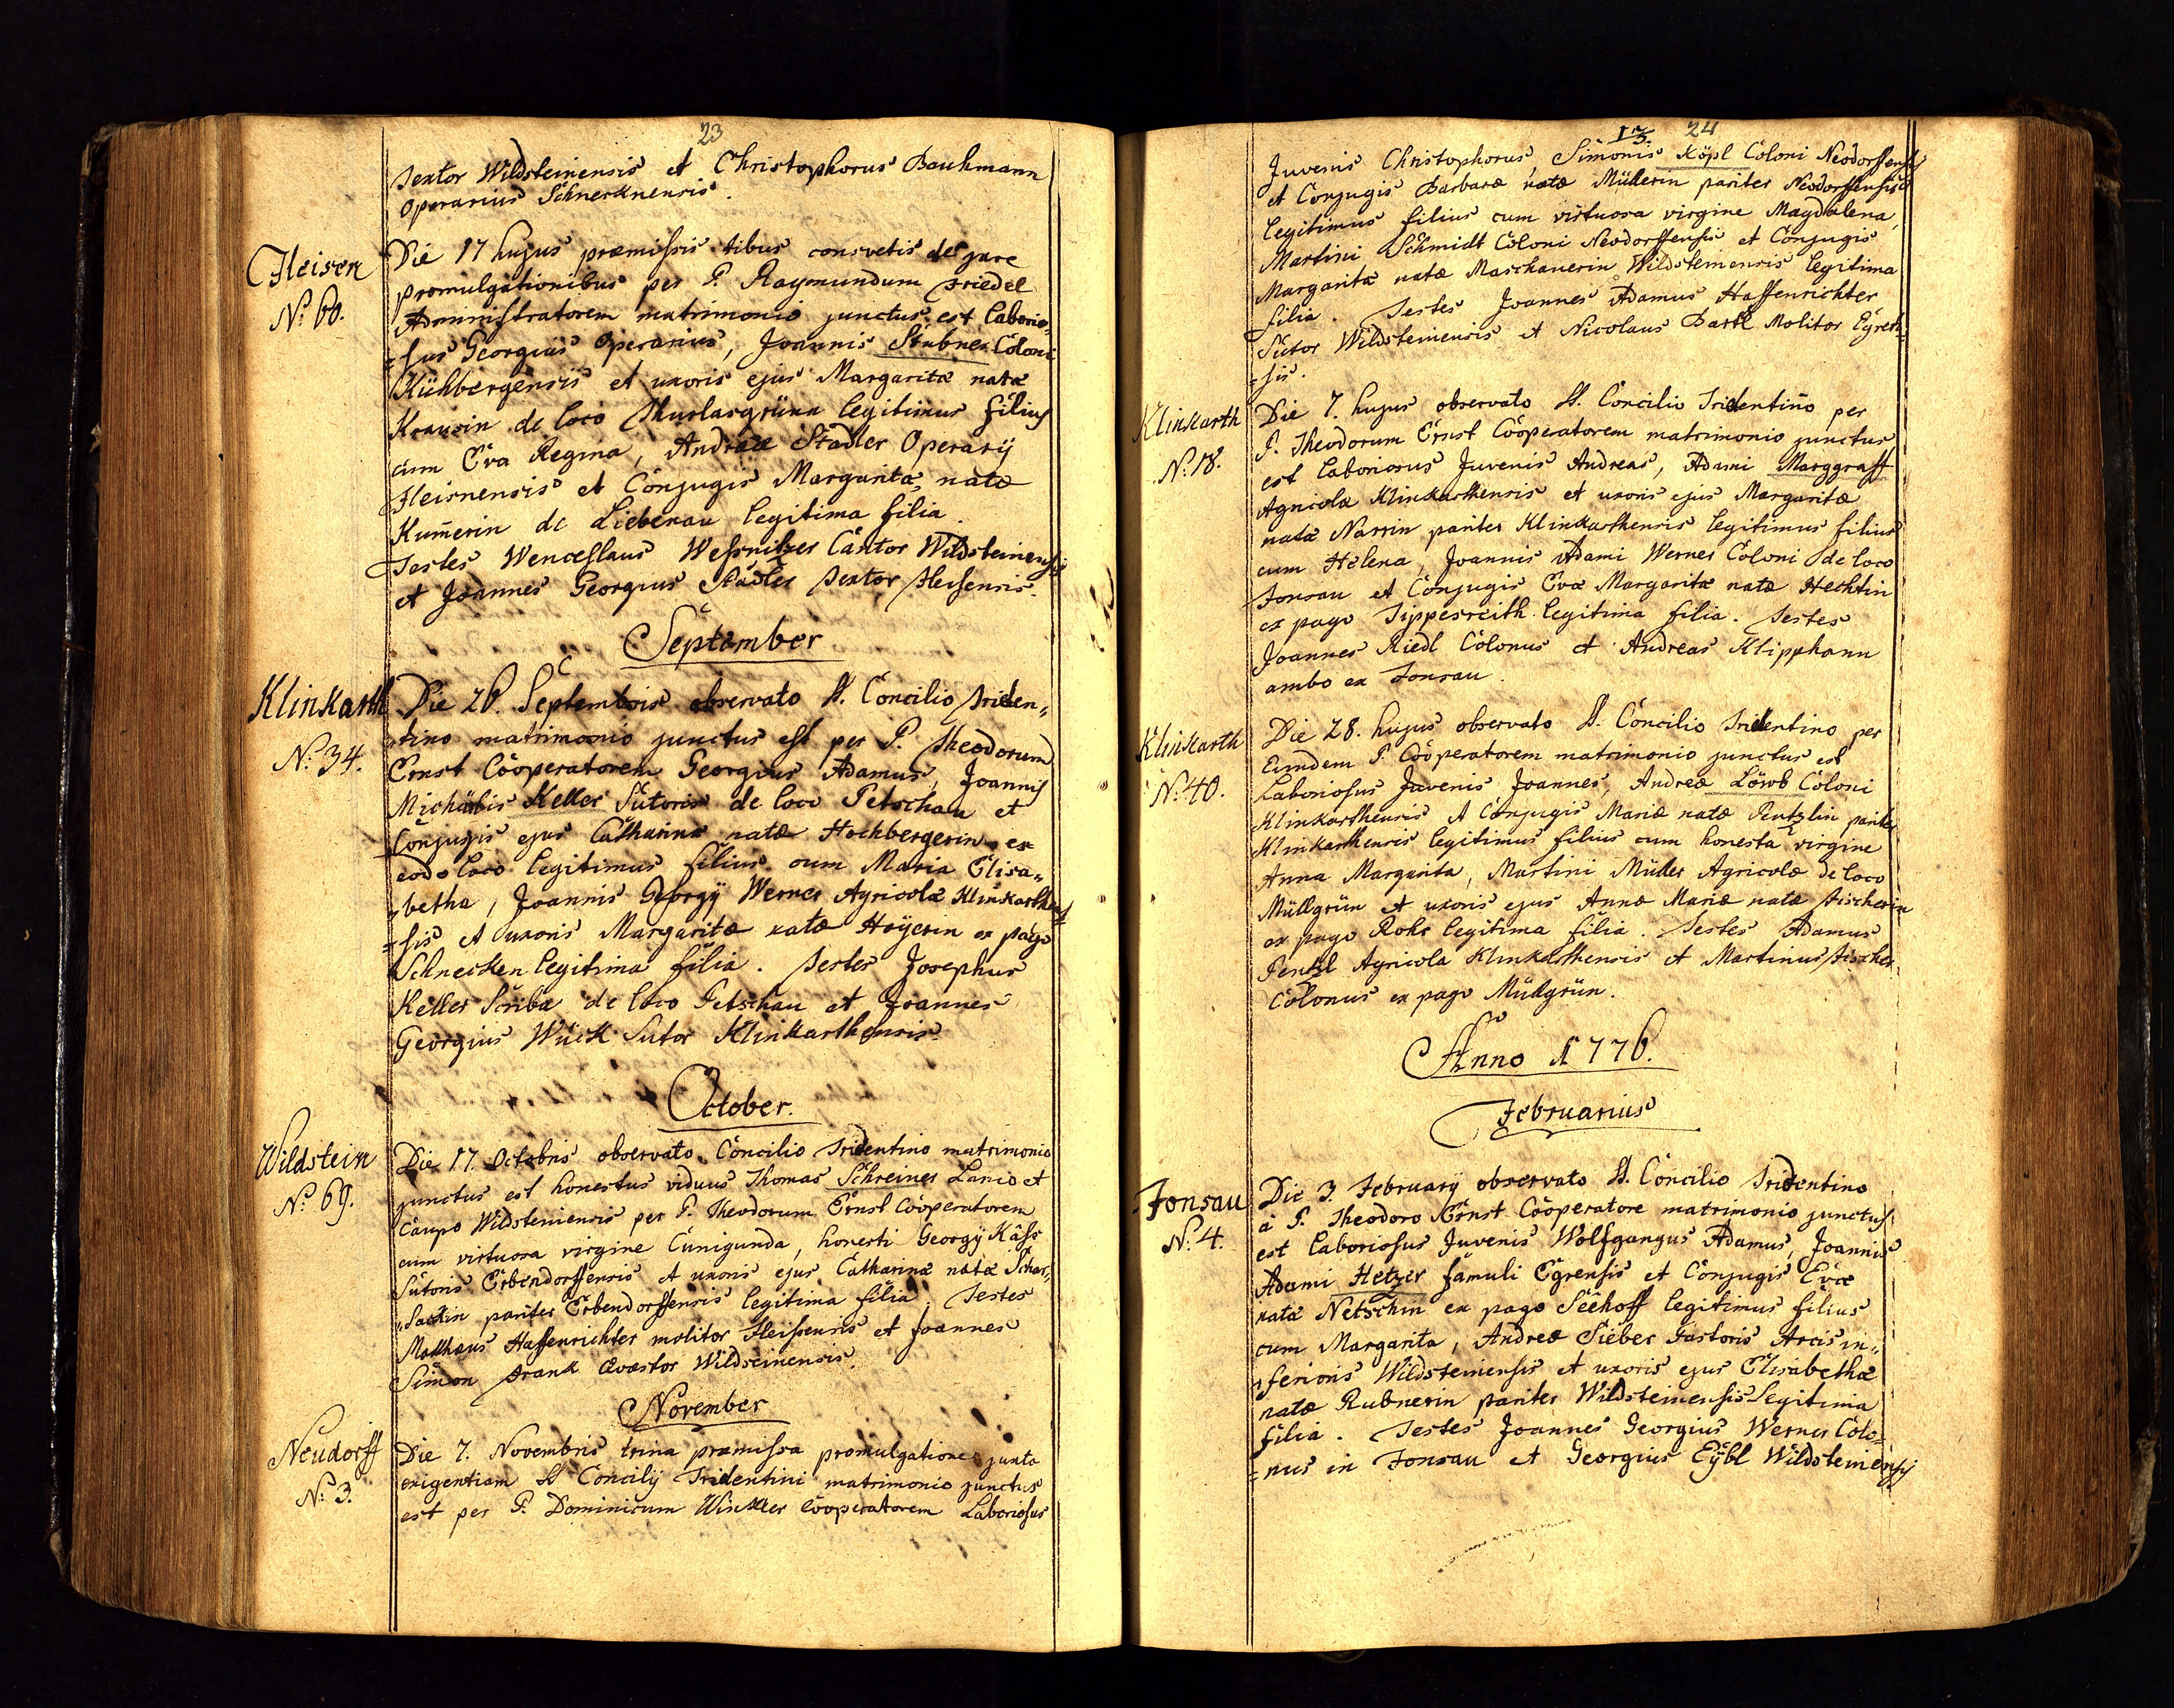 23
Textor Wildsteinensis et Christophorus Bauhmann
Operarius Schnecknensis.
Fleisen
N.º 60.
Die 17 hujus præmissis tibus consvetis de jure
promulgationibus per P. Raymundum Friedel
Administratorem matrimonio junctus est Laborio=
=sus Georgius Operarius, Joannis Stubner Coloni
Kühbergensis et uxoris ejus Margaritæ natæ
Krausin de loco Thurlasgrünn legitimus filius
cum Eva Regina, Andreæ Stadler Operarij
Fleisnensis et Conjugis Margaritæ natæ
Kum̄erin de Liebenau legitima filia.
Testes Wenceslaus Wessnitzer Cantor Wildsteinensis
et Joannes Georgius Stadler Textor Fleisensis.
September
Klinkarth
N.º 34.
Die 26. Septembris observato St. Concilio Triden„
„tino matrimonio junctus est per P. Theodorum
Ernst Cooperatorem Georgius Adamus, Joannis
Michaëlis Keller Sutoris de loco Petschau et
Conjugis ejus Catharinæ natæ Hochbergerin ex
eodo loco legitimus filius cum Maria Elisa„
„betha, Joannis Georgÿ Werner Agricolæ Klinkarthen
=sis et uxoris Margaritæ natæ Hoÿerin ex pago
Schnecken legitima filia. Testes Josephus
Keller Scriba de loco Petschau et Joannes
Georgius Wück Sutor Klinkarthensis.
October.
Wildstein
N.º 69.
Die 17. Octobris observato Concilio Tridentino matrimonio
junctus est honestus viduus Thomas Schreiner Lanio et
Caupo Wildsteinensis per P. Theodorum Ernst Cooperatorem
cum virtuosa virgine Cunigunda, honesti Georgÿ Käss
Sutoris Erbendorffensis et uxoris ejus Catharinæ natæ Schar„
„sackin pariter Erbendorffensis legitima filia. Testes
Mathæus Haffenrichter molitor Fleissensis et Joannes
Simon Frank Qvæstor Wildseinensis.
November
Neudorff
N.º 3.
Die 7. Novembris trina præmissa promulgatione juxta
exigentiam St Concilij Tridentini matrimonio junctus
est per P. Dominicum Winkler Cooperatorem Laboriosus
13. 24
Juvenis Christophorus, Simonis Köpl Coloni Neodorffensis
et Conjugis Barbaræ natæ Müllerin pariter Neodorffensis
legitimus filius cum virtuosa virgine Magdalena,
Martini Schmidt Coloni Neodorffensis et Conjugis
Margaritæ natæ Maschauerin Wildsteinensis legitima
filia. Testes Joannes Adamus Haffenrichter
Sutor Wildsteinensis et Nicolaus Bartl Molitor Egren=
=sis.
Klinkarth
N.º 18.
Die 7. hujus observato St. Concilio Tridentino per
P. Theodorum Ernst Cooperatorem matrimonio junctus
est Laboriosus Juvenis Andreas, Adami Marggraff
Agricolæ Klinkarthensis et uxoris ejus Margaritæ
natæ Narrin pariter Klinkarthensis legitimus filius
cum Helena, Joannis Adami Werner Coloni de loco
Fonsau et Conjugis Evæ Margaritæ natæ Hechtin
ex pago Tippesreith legitima filia. Testes
Joannes Riedl Colonus et Andreas Klipphann
ambo ex Fonsau.
Klinkarth
N.º 40.
Die 28. hujus observato St. Concilio Tridentino per
Eundem P. Cooperatorem matrimonio junctus est
Laboriosus Juvenis Joannes, Andreæ Löwb Coloni
Klinkarthensis et Conjugis Mariæ natæ Pentzlin pariter
Klinkarthensis legitimus filius cum honesta virgine
Anna Margarita, Martini Müller Agricolæ de loco
Müllgrün et uxoris ejus Annæ Mariæ natæ Fischerin
ex pago Rohr legitima filia. Testes Adamus
Pentzl Agricola Klinkarthensis et Martinus Fischer
Colonus ex pago Müllgrün.
Anno 1776.
Februarius
Fonsau
N.º 4.
Die 3. Februarÿ observato St. Concilio Tridentino
à P. Theodoro Ernst Cooperatore matrimonio junctus
est Laboriosus Juvenis Wolfgangus Adamus, Joannis
Adami Hetzer famuli Egrensis et Conjugis Evæ
natæ Netschin ex pago Seehoff legitimus filius
cum Margarita, Andreæ Sieber Pastoris Arcis in„
„ferioris Wildsteinensis et uxoris ejus Elisabethæ
natæ Rubnerin pariter Wildsteinensis legitima
filia. Testes Joannes Georgius Werner Colo=
=nus in Fonsau et Georgius Eÿbl Wildsteinensis